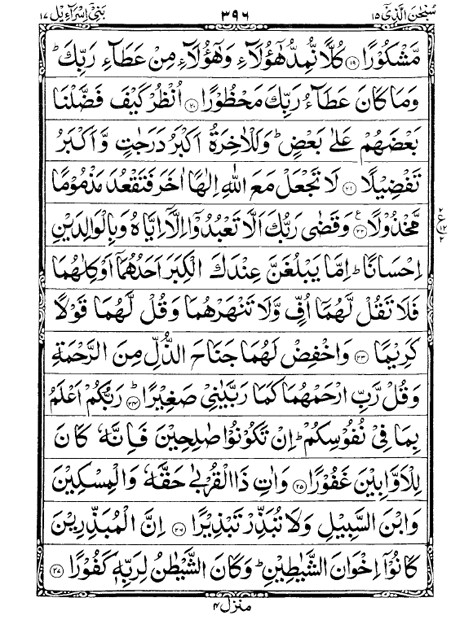 سُبْحٰنَ الَّذِیْۤ ۱۵ ۳۹۶ بَنِیْۤ اِسْرَآءِیْل ۱۷
مَّشْكُوْرًا ﴿۱۹﴾ كُلًّا نُّمِدُّ هٰۤؤُلَآءِ وَهٰۤؤُلَآءِ مِنْ عَطَآءِ رَبِّكَ ؕ
وَمَا كَانَ عَطَآءُ رَبِّكَ مَحْظُوْرًا ﴿۲۰﴾ اُنْظُرْ كَیْفَ فَضَّلْنَا
بَعْضَهُمْ عَلٰی بَعْضٍ ؕ وَلَلْاٰخِرَةُ اَكْبَرُ دَرَجٰتٍ وَّاَكْبَرُ
تَفْضِیْلًا ﴿۲۱﴾ لَا تَجْعَلْ مَعَ اللّٰهِ اِلٰهًا اٰخَرَ فَتَقْعُدَ مَذْمُوْمًا
مَّخْذُوْلًا ﴿۲۲﴾ وَقَضٰی رَبُّكَ اَلَّا تَعْبُدُوْۤا اِلَّاۤ اِیَّاهُ وَبِالْوَالِدَیْنِ
اِحْسَانًا ؕ اِمَّا یَبْلُغَنَّ عِنْدَكَ الْكِبَرَ اَحَدُهُمَاۤ اَوْ كِلٰهُمَا
فَلَا تَقُلْ لَّهُمَاۤ اُفٍّ وَّلَا تَنْهَرْهُمَا وَقُلْ لَّهُمَا قَوْلًا
كَرِیْمًا ﴿۲۳﴾ وَاخْفِضْ لَهُمَا جَنَاحَ الذُّلِّ مِنَ الرَّحْمَةِ
وَقُلْ رَّبِّ ارْحَمْهُمَا كَمَا رَبَّیٰنِیْ صَغِیْرًا ﴿۲۴﴾ رَبُّكُمْ اَعْلَمُ
بِمَا فِیْ نُفُوْسِكُمْ ؕ اِنْ تَكُوْنُوْا صٰلِحِیْنَ فَاِنَّهٗ كَانَ
لِلْاَوَّابِیْنَ غَفُوْرًا ﴿۲۵﴾ وَاٰتِ ذَا الْقُرْبٰی حَقَّهٗ وَالْمِسْكِیْنَ
وَابْنَ السَّبِیْلِ وَلَا تُبَذِّرْ تَبْذِیْرًا ﴿۲۶﴾ اِنَّ الْمُبَذِّرِیْنَ
كَانُوْۤا اِخْوَانَ الشَّیٰطِیْنِ ؕ وَكَانَ الشَّیْطٰنُ لِرَبِّهٖ كَفُوْرًا ﴿۲۷﴾
منزل ۴